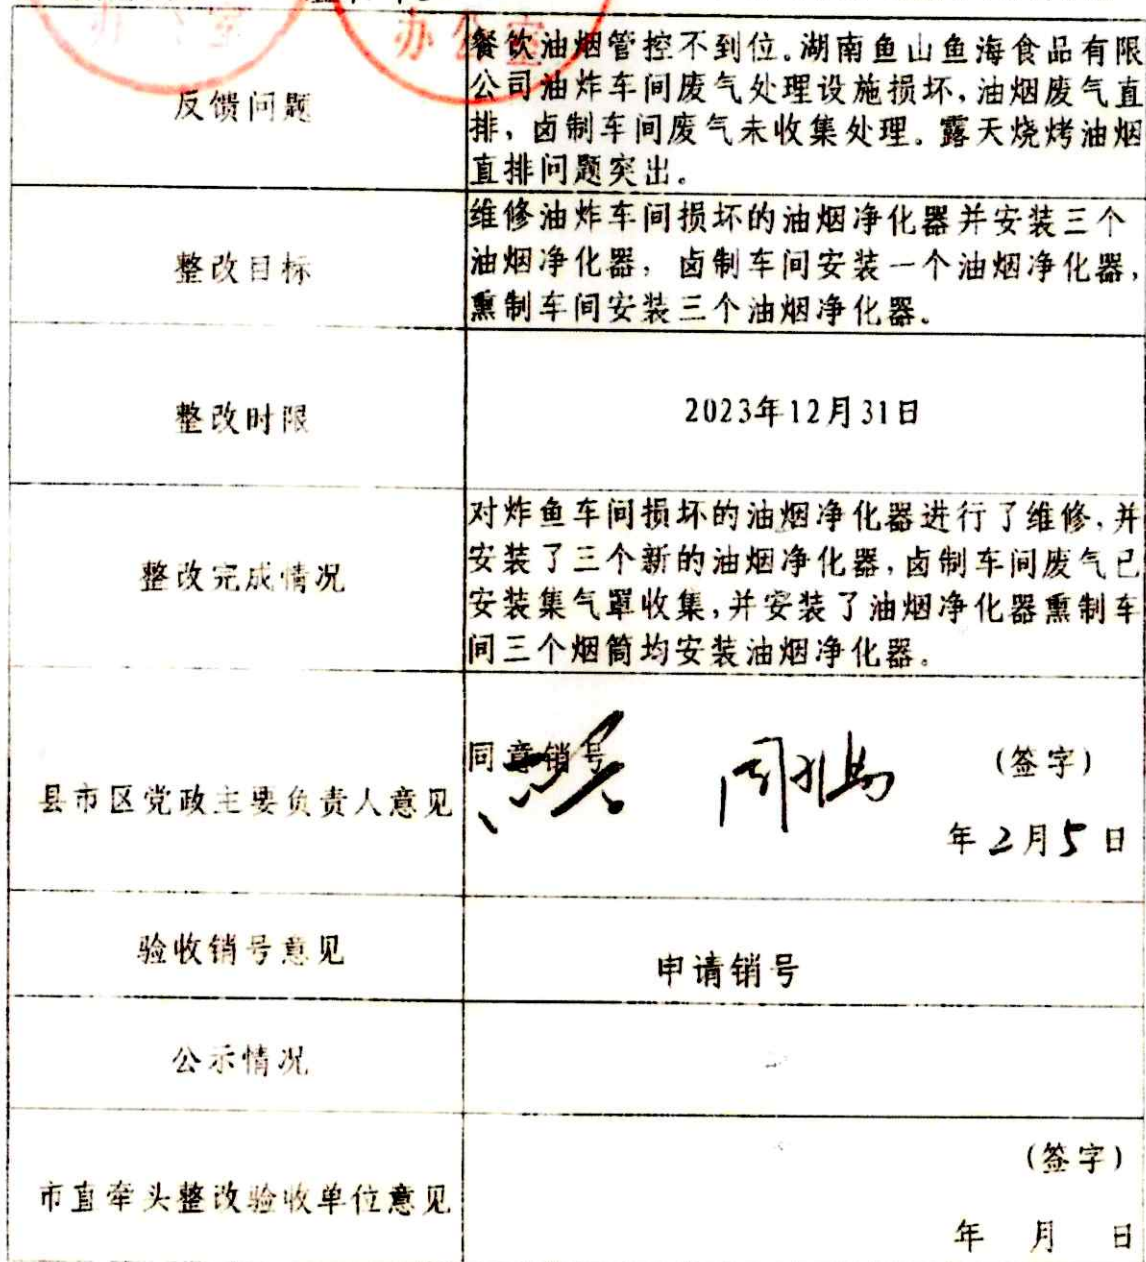 办公室
办公室
餐饮油烟管控不到位。湖南鱼山鱼海食品有限
公司油炸车间废气处理设施损坏,油烟废气直
排,卤制车间废气未收集处理。露天烧烤油烟
直排问题突出。
反馈问题
维修油炸车间损坏的油烟净化器并安装三个
油烟净化器,卤制车间安装一个油烟净化器,
熏制车间安装三个油烟净化器。
整改目标
整改时限
2023年12月31日
对炸鱼车间损坏的油烟净化器进行了维修,并
安装了三个新的油烟净化器,卤制车间废气已
安装集气罩收集,并安装了油烟净化器熏制车
间三个烟筒均安装油烟净化器。
整改完成情况
县市区党政主要负责人意见
同意销号
(签字)
年2月5日
验收销号意见
申请销号
公示情况
市直牵头整改验收单位意见
(签字)
年 月 日